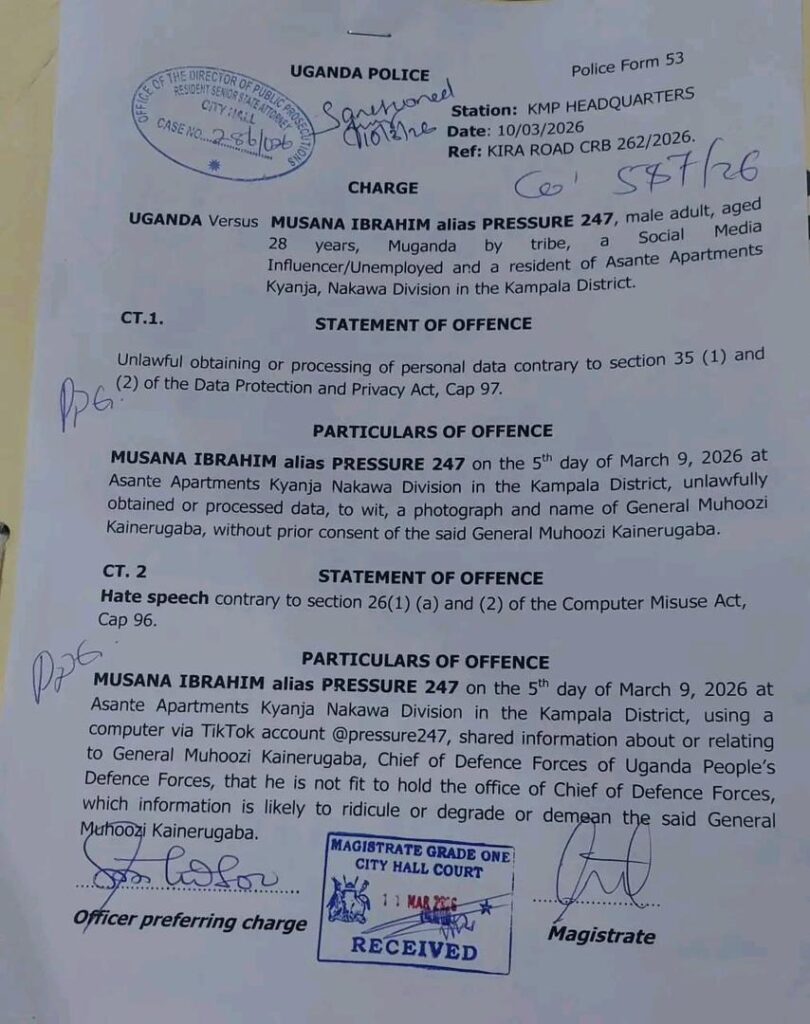 UGANDA POLICE
Police Form 53
OFFICE OF THE DIRECTOR OF PUBLIC PROSECUTIONS
RESIDENT SENIOR STATE ATTORNEY
CITY HALL
CASE NO. 286/026
Sanctioned
10/3/26
Station: KMP HEADQUARTERS
Date: 10/03/2026
Ref: KIRA ROAD CRB 262/2026.
587/26
CHARGE
UGANDA Versus MUSANA IBRAHIM alias PRESSURE 247, male adult, aged
28 years, Muganda by tribe, a Social Media
Influencer/Unemployed and a resident of Asante Apartments
Kyanja, Nakawa Division in the Kampala District.
CT.1.
STATEMENT OF OFFENCE
Unlawful obtaining or processing of personal data contrary to section 35 (1) and
(2) of the Data Protection and Privacy Act, Cap 97.
PARTICULARS OF OFFENCE
MUSANA IBRAHIM alias PRESSURE 247 on the 5th day of March 9, 2026 at
Asante Apartments Kyanja Nakawa Division in the Kampala District, unlawfully
obtained or processed data, to wit, a photograph and name of General Muhoozi
Kainerugaba, without prior consent of the said General Muhoozi Kainerugaba.
CT. 2
STATEMENT OF OFFENCE
Hate speech contrary to section 26(1) (a) and (2) of the Computer Misuse Act,
Cap 96.
PARTICULARS OF OFFENCE
MUSANA IBRAHIM alias PRESSURE 247 on the 5th day of March 9, 2026 at
Asante Apartments Kyanja Nakawa Division in the Kampala District, using a
computer via TikTok account @pressure247, shared information about or relating
to General Muhoozi Kainerugaba, Chief of Defence Forces of Uganda People's
Defence Forces, that he is not fit to hold the office of Chief of Defence Forces,
which information is likely to ridicule or degrade or demean the said General
Muhoozi Kainerugaba.
MAGISTRATE GRADE ONE
CITY HALL COURT
11 MAR 2026
RECEIVED
Officer preferring charge
Magistrate